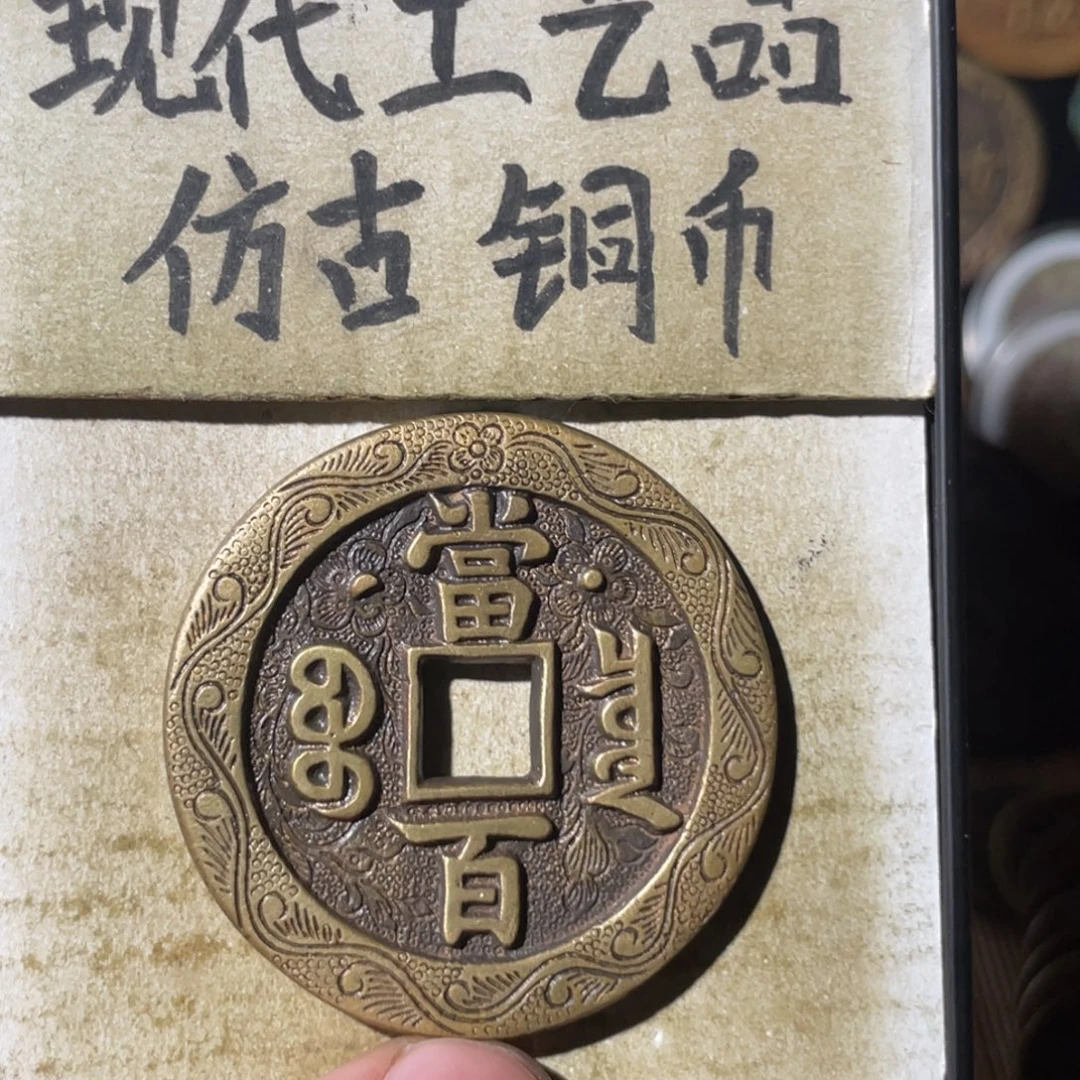 现代工艺品
仿古铜币
當百